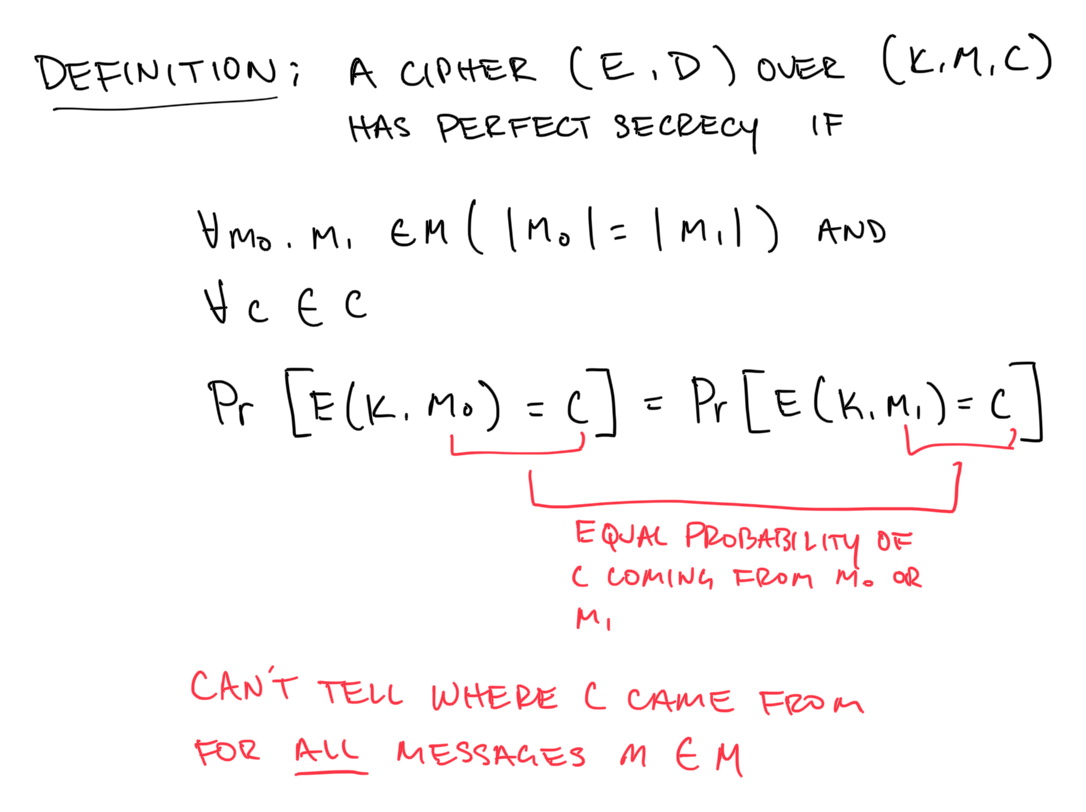 DEFINITION: A CIPHER (E, D) OVER (K, M, C)
HAS PERFECT SECRECY IF
∀m₀, m₁ ∈ M (|m₀| = |m₁|) AND
∀ c ∈ C
Pr [E(K, m₀) = C] = Pr [E(K, m₁) = C]
EQUAL PROBABILITY OF
C COMING FROM M₀ OR
M₁
CAN'T TELL WHERE C CAME FROM
FOR ALL MESSAGES M ∈ M